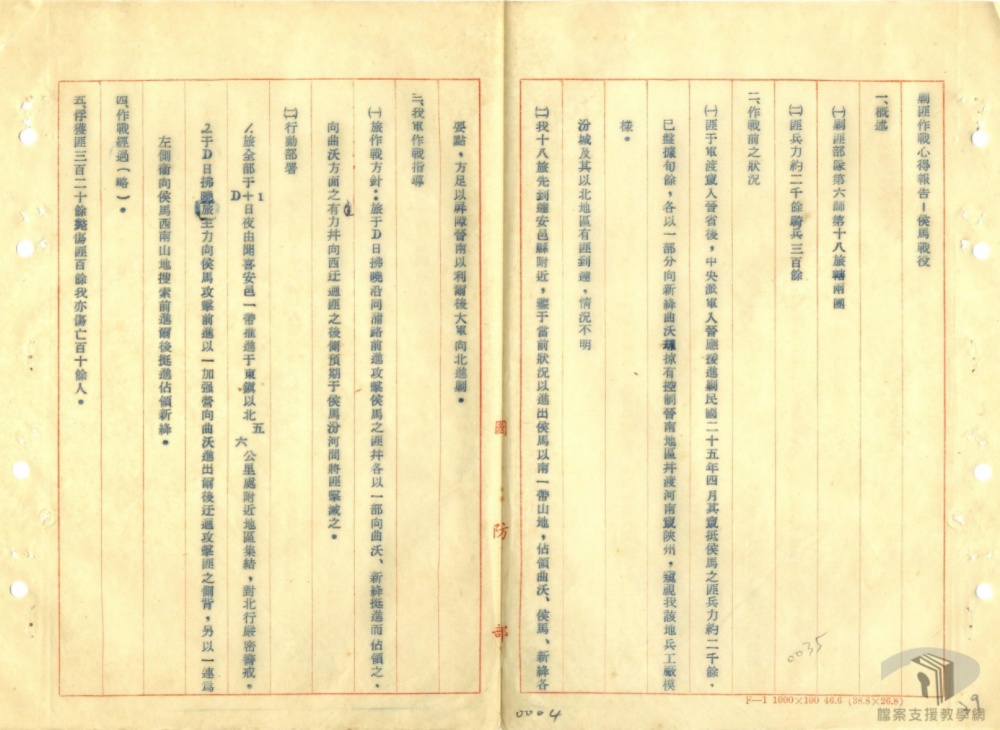 剿匪作戰心得報告—侯馬戰役
一、概述
㈠剿匪部隊第六師第十八旅轄兩團
㈡匪兵力約二千餘騎兵三百餘
二、作戰前之狀況
㈠匪于軍渡竄入晉省後，中央派軍入晉應援進剿民國二十五年四月其竄抵侯馬之匪兵力約二千餘，
已盤據旬餘，各以一部分向新絳曲沃擄掠有控制晉南地區并渡河南竄陝州，窺視我該地兵工廠模
樣。
汾城及其以北地區有匪到達，情況不明
㈡我十八旅先到達安邑縣附近，鑑于當前狀況以進出侯馬以南一帶山地，佔領曲沃、侯馬、新絳各
要點，方足以屏障晉南以利爾後大軍向北進剿。
三、我軍作戰指導
㈠旅作戰方針：旅于D日拂曉沿同蒲路前進攻擊侯馬之匪并各以一部向曲沃、新絳挺進而佔領之，
向曲沃方面之有力并向西迂迴匪之後側預期于侯馬汾河間將匪擊滅之。
㈡行動部署
1.旅全部于D+1日夜由聞喜安邑一帶推進于東鎮以北五六公里處附近地區集結，對北行嚴密警戒。
2.于D日拂曉旅主力向侯馬攻擊前進以一加强營向曲沃進出爾後迂迴攻擊匪之側背，另以一連為
左側衛向侯馬西南山地搜索前進爾後挺進佔領新絳。
四、作戰經過（略）。
五、俘獲匪三百二十餘斃傷匪百餘我亦傷亡百十餘人。
國防部
0035
29
0004
F—1 1000×100 46.6 (38.8×26.8)
檔案支援教學網